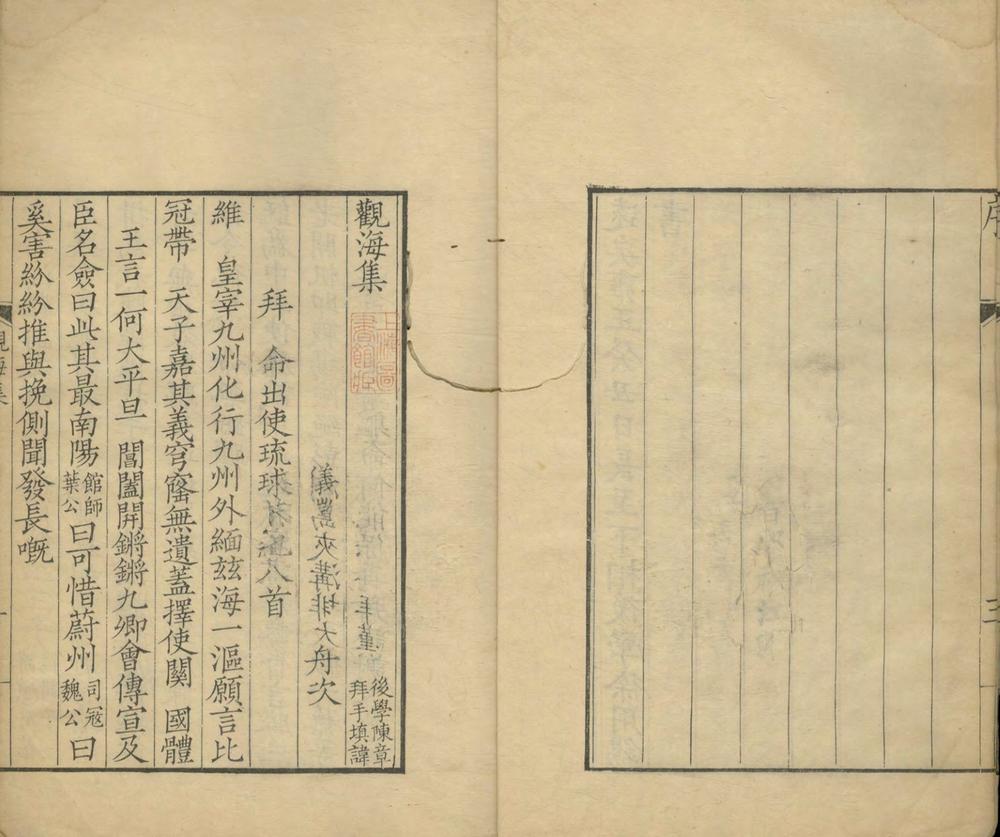 三
觀海集
後學陳章
拜手填諱
上海圖書館藏
舟次
拜 命出使琉球恭紀八首
維 皇宰九州化行九州外緬玆海一漚願言比
冠帶 天子嘉其義穹窿無遺蓋擇使關 國體
王言一何大平旦 閶闔開鏘鏘九卿會傳宣及
臣名僉曰此其最南陽館師葉公曰可惜蔚州司冦魏公曰
奚害紛紛推與挽側聞發長嘅
觀海集